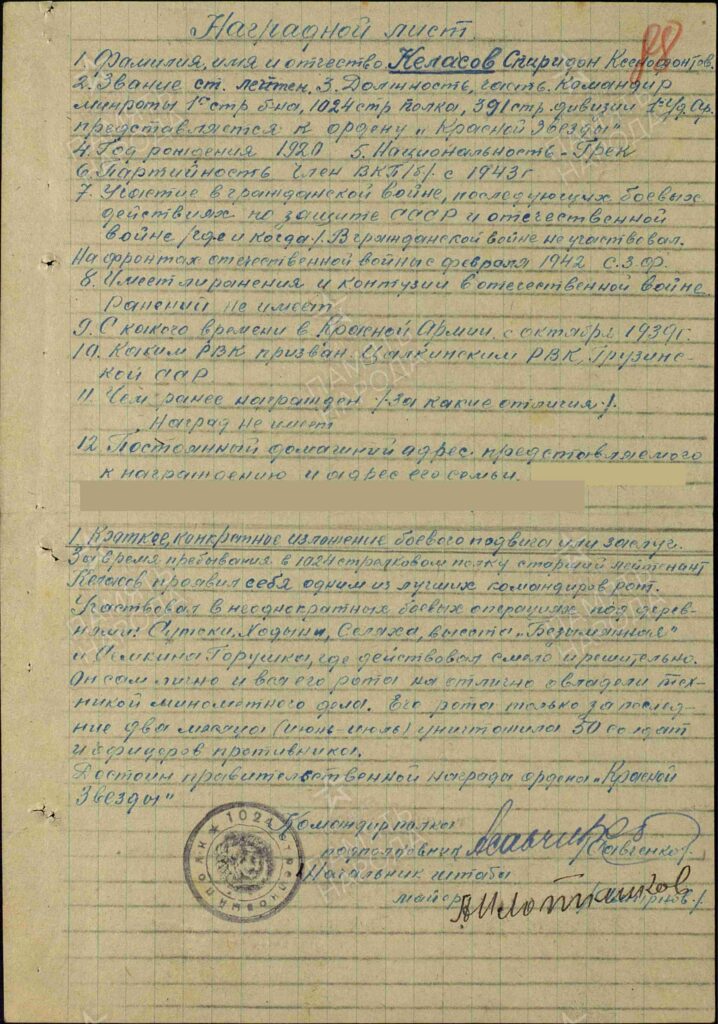 Наградной лист.
88
1. Фамилия, имя и отчество Келасов Спиридон Ксенофонтов.
2. Звание ст. лейтен. 3. Должность, часть. Командир
минроты 1го стр б-на, 1024 стр полка, 391 стр. дивизии 1й Уд. Ар.
представляется к ордену „Красной Звезды"
4. Год рождения 1920 5. Национальность - Грек
6. Партийность Член ВКП/б/. с 1943г
7. Участие в гражданской войне, последующих боевых
действиях по защите СССР и отечественной
войне /где и когда/. В гражданской войне не участвовал.
На фронтах отечественной войны с февраля 1942 С.З.Ф.
8. Имеет ли ранения и контузии в отечественной войне.
Ранений не имеет
9. С какого времени в Красной Армии. с октября 1939г.
10. Каким РВК призван. Цалкинским РВК, Грузинс-
кой ССР
11. Чем ранее награжден /за какие отличия/.
Наград не имеет
12. Постоянный домашний адрес. представляемого
к награждению и адрес его семьи.
1. Краткое, конкретное изложение боевого подвига или заслуг.
За время пребывания в 1024 стрелковом полку старший лейтенант
Келасов проявил себя одним из лучших командиров рот.
Участвовал в неоднократных боевых операциях под дерев-
нями: Сутоки, Ходыни, Селаха, высота „Безымянная"
и Семкина Горушка, где действовал смело и решительно.
Он сам лично и вся его рота на отлично овладели тех-
никой минометного дела. Его рота только за послед-
ние два месяца (июнь-июль) уничтожила 50 солдат
и офицеров противника.
Достоин правительственной награда ордена „Красной
Звезды"
Командир полка
подполковник /Савченко/.
Начальник штаба
майор
1024 стрелковый полк
ПАМЯТЬ НАРОДА